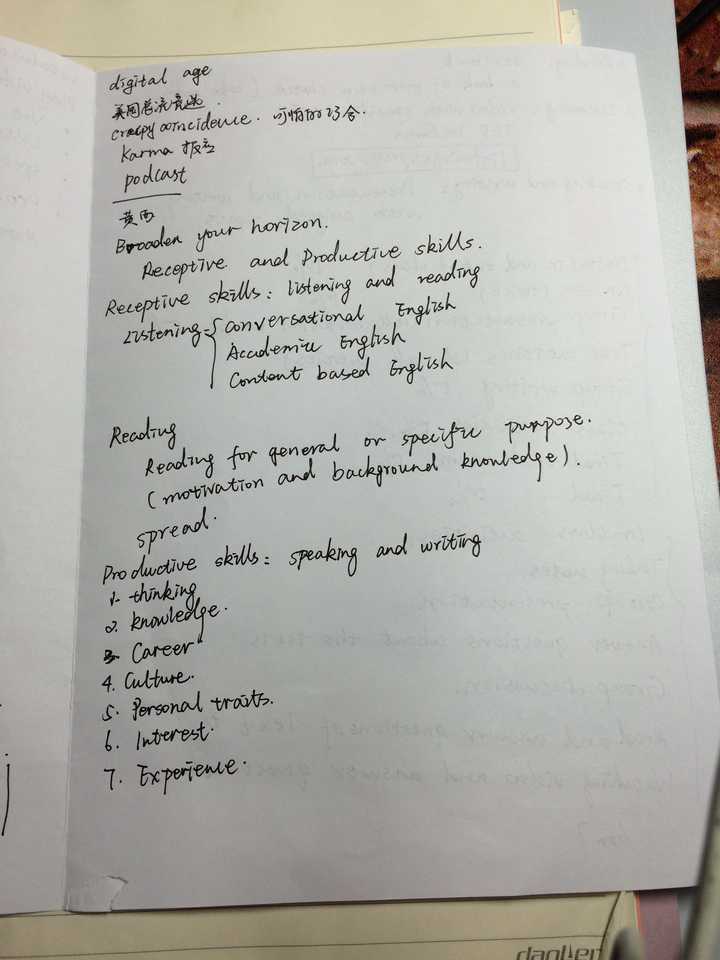 digital age
美国总统竞选.
creepy coincidence. 可怕的巧合.
Karma 报应
podcast
黄西
Broaden your horizon.
Receptive and Productive skills.
Receptive skills: listening and reading
Listening { conversational English
Accademic English
Content based English
Reading
Reading for general or specific purpose.
(motivation and background knowledge).
spread.
Productive skills: speaking and writing
1. thinking
2. knowledge.
3. Career
4. Culture.
5. Personal traits.
6. Interest.
7. Experience.